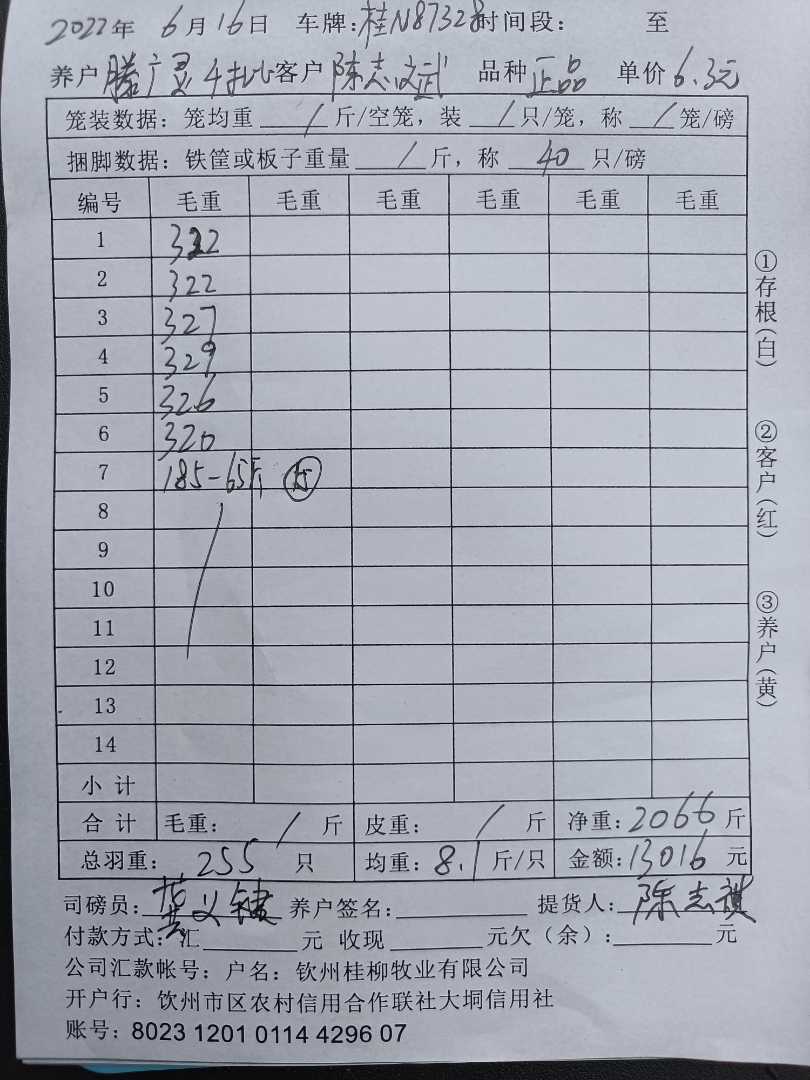 2022年 6月16日 车牌:桂N87328时间段: 至
养户 滕广灵 客户 陈志武 品种 正品 单价6.3元
笼装数据: 笼均重 / 斤/空笼, 装 / 只/笼, 称 / 笼/磅
捆脚数据: 铁筐或板子重量 / 斤, 称 40 只/磅
编号 毛重 毛重 毛重 毛重 毛重 毛重
1 322
2 322
3 327
4 329
5 326
6 320
7 185-65斤 15
8
9
10
11
12
13
14
小计
合计 毛重: / 斤 皮重: / 斤 净重:2066斤
总羽重: 255 只 均重:8.1斤/只 金额:13016元
司磅员: 养户签名: 提货人:陈志祺
付款方式: 汇 元 收现 元欠(余): 元
公司汇款帐号: 户名: 钦州桂柳牧业有限公司
开户行: 钦州市区农村信用合作联社大垌信用社
账号: 8023 1201 0114 4296 07
①存根(白)
②客户(红)
③养户(黄)